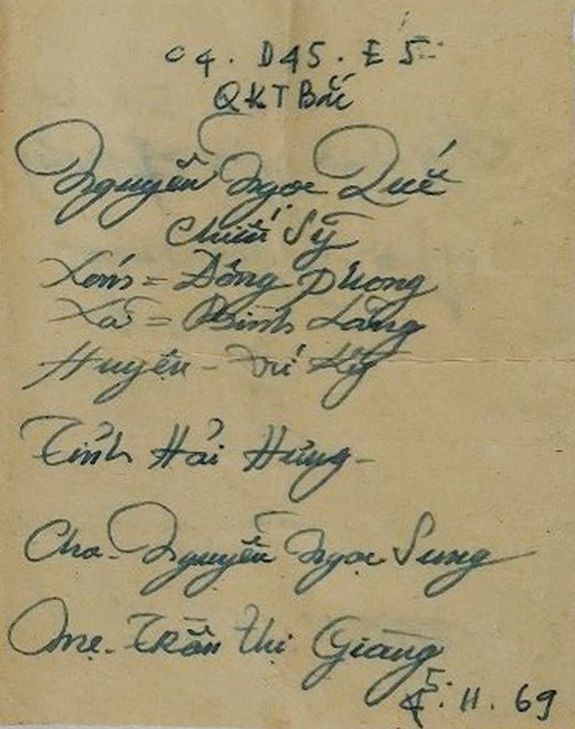 C4. D45. E5
QKTBắc
Nguyễn Ngọc Quế
Chiến Sỹ
Xóm = Đông Phong
Xã = Bình Lãng
Huyện - Tứ Kỳ
Tỉnh Hải Hưng -
Cha - Nguyễn Ngọc Sung
Mẹ - Trần Thị Giàng
5. 11. 69